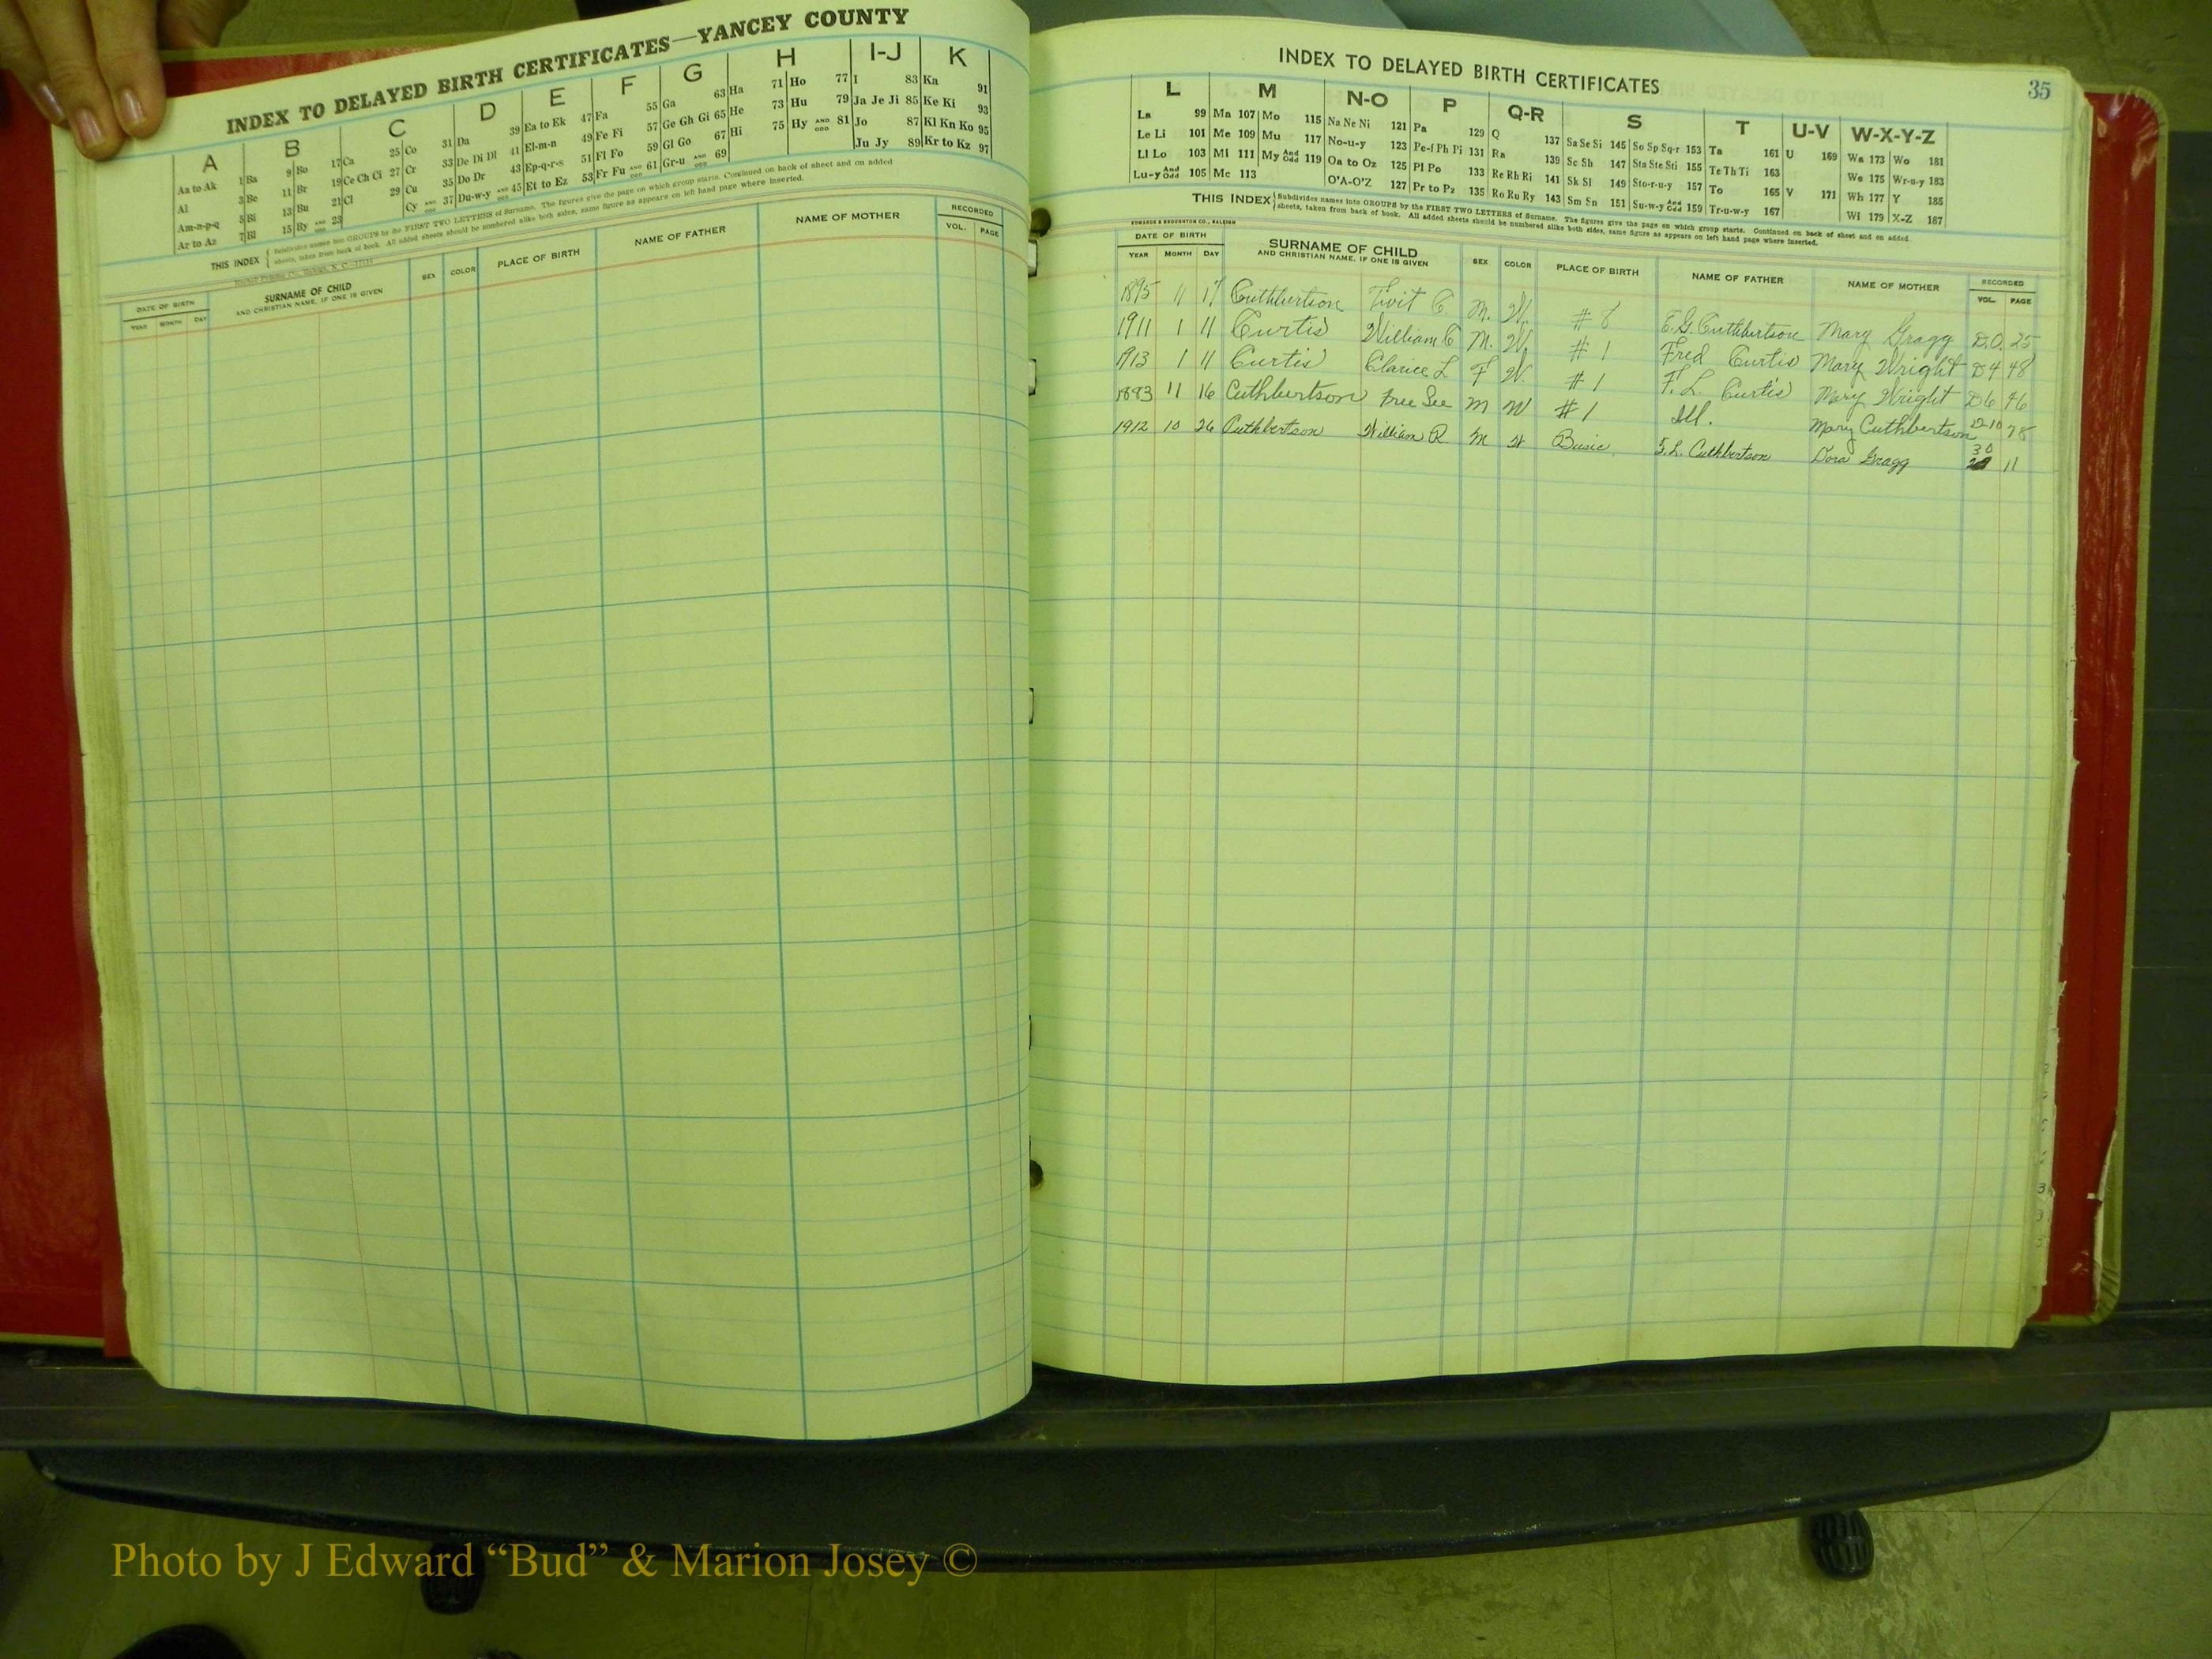 INDEX TO DELAYED BIRTH CERTIFICATES—YANCEY COUNTY
A B C D E F G H I-J K
Aa to Ak 1 Ba 9 Bo 17 Ca 25 Co 31 Da 39 Ea to Ek 47 Fa 55 Ga 63 Ha 71 Ho 77 I 83 Ka 91
Al 3 Be 11 Br 19 Ce Ch Ci 27 Cr 33 De Di Dl 41 El-m-n 49 Fe Fi 57 Ge Gh Gi 65 He 73 Hu 79 Ja Je Ji 85 Ke Ki 93
Am-n-p-q 5 Bi 13 Bu 21 Cl 29 Cu 35 Do Dr 43 Ep-q-r-s 51 Fl Fo 59 Gl Go 67 Hi 75 Hy AND ODD 81 Jo 87 Kl Kn Ko 95
Ar to Az 7 Bl 15 By AND 23 Cy AND ODD 37 Du-w-y AND ODD 45 Et to Ez 53 Fr Fu AND ODD 61 Gr-u AND ODD 69 Ju Jy 89 Kr to Kz 97
THIS INDEX { Subdivides names into GROUPS by the FIRST TWO LETTERS of Surname. The figures give the page on which group starts. Continued on back of sheet and on added
sheets, taken from back of book. All added sheets should be numbered alike both sides, same figure as appears on left hand page where inserted.
DATE OF BIRTH SURNAME OF CHILD SEX COLOR PLACE OF BIRTH NAME OF FATHER NAME OF MOTHER RECORDED
YEAR MONTH DAY AND CHRISTIAN NAME, IF ONE IS GIVEN VOL. PAGE
INDEX TO DELAYED BIRTH CERTIFICATES 35
L M N-O P Q-R S T U-V W-X-Y-Z
La 99 Ma 107 Mo 115 Na Ne Ni 121 Pa 129 Q 137 Sa Se Si 145 So Sp Sq-r 153 Ta 161 U 169 Wa 173 Wo 181
Le Li 101 Me 109 Mu 117 No-u-y 123 Pe-f Ph Pi 131 Ra 139 Sc Sh 147 Sta Ste Sti 155 Te Th Ti 163 We 175 Wr-u-y 183
Ll Lo 103 Mi 111 My And Odd 119 Oa to Oz 125 Pl Po 133 Re Rh Ri 141 Sk Sl 149 Sto-r-u-y 157 To 165 V 171 Wh 177 Y 185
Lu-y And Odd 105 Mc 113 O'A-O'Z 127 Pr to Pz 135 Ro Ru Ry 143 Sm Sn 151 Su-w-y And Odd 159 Tr-u-w-y 167 Wi 179 X-Z 187
THIS INDEX { Subdivides names into GROUPS by the FIRST TWO LETTERS of Surname. The figures give the page on which group starts. Continued on back of sheet and on added
sheets, taken from back of book. All added sheets should be numbered alike both sides, same figure as appears on left hand page where inserted.
EDWARDS & BROUGHTON CO., RALEIGH
DATE OF BIRTH SURNAME OF CHILD SEX COLOR PLACE OF BIRTH NAME OF FATHER NAME OF MOTHER RECORDED
YEAR MONTH DAY AND CHRISTIAN NAME, IF ONE IS GIVEN VOL. PAGE
1895 11 17 Cuthbertson C M. W. # 8 E.G. Cuthbertson Mary Gragg D.O. 25
1911 1 11 Curtis William C M. W. # 1 Fred Curtis Mary Wright D 4 48
1913 1 11 Curtis Clarice L F W. # 1 F. L. Curtis Mary Wright D 6 46
1893 11 16 Cuthbertson M W #1 Ill. Mary Cuthbertson D-10 78
1912 10 26 Cuthbertson William R. M W Busic Cuthbertson Dora Gragg 30 11
Photo by J Edward “Bud” & Marion Josey ©